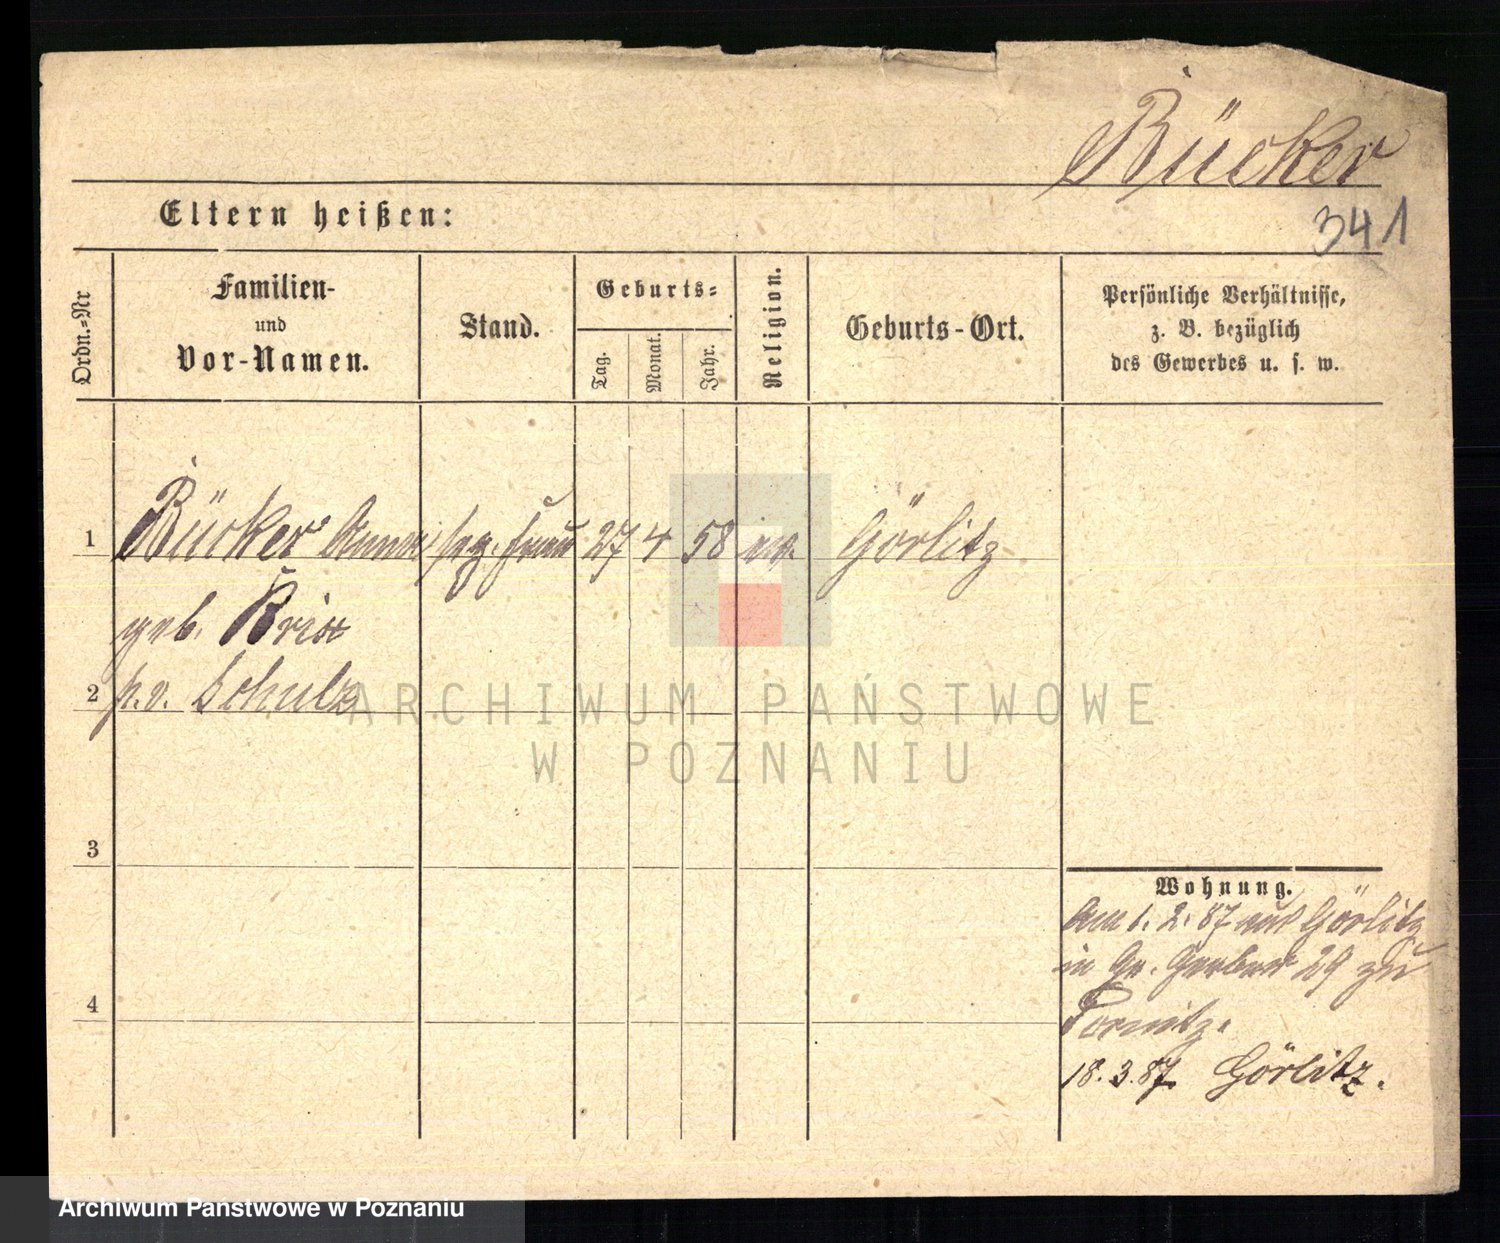 Bücker
341
Eltern heißen:
Ordn.=Nr
Familien-
und
Vor-Namen.
Stand.
Geburts=
Tag.
Monat.
Jahr.
Religion.
Geburts-Ort.
Persönliche Verhältnisse,
z. B. bezüglich
des Gewerbes u. s. w.
1 Bücker Anna Frau 27 4 58 ev. Görlitz
geb. Brix
2 p.v. Schulz
ARCHIWUM PAŃSTWOWE
W POZNANIU
3
Wohnung.
Am 1. 2. 87 aus Görlitz
in Gr. Gerber 29 zu
4
18.3.87 Görlitz.
Archiwum Państwowe w Poznaniu